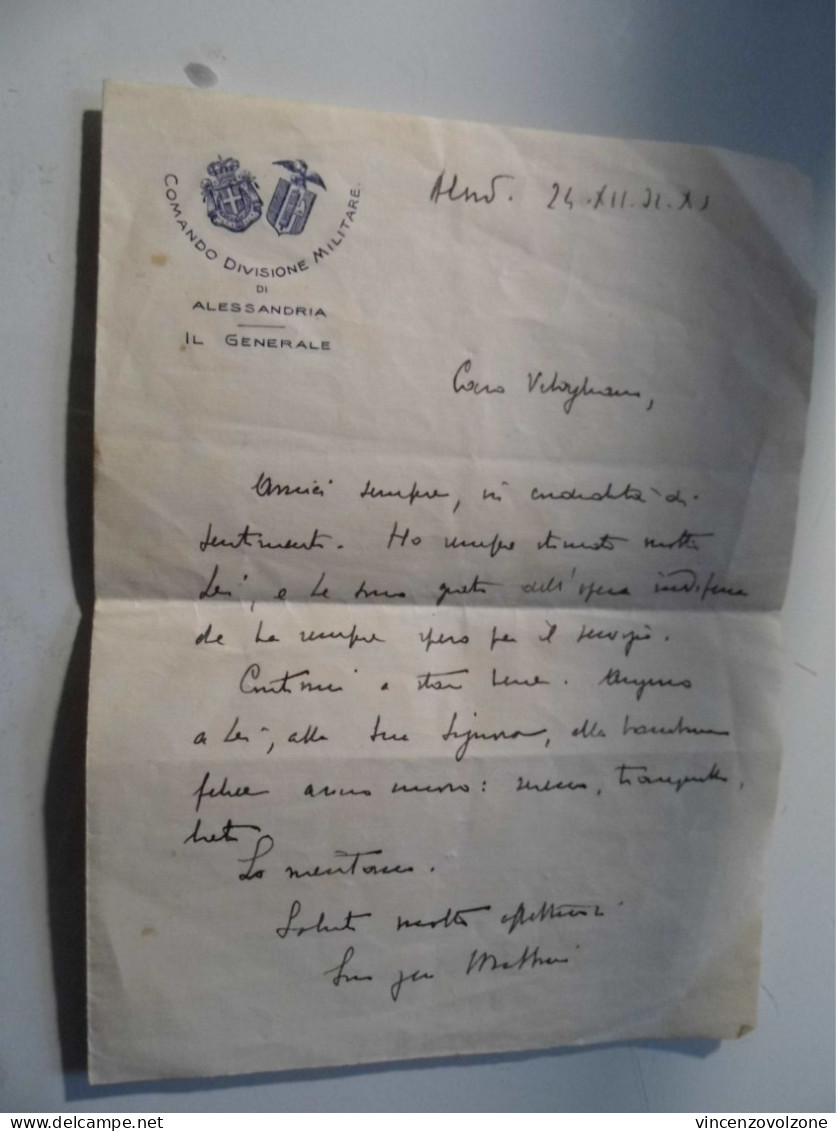 COMANDO DIVISIONE MILITARE
DI
ALESSANDRIA
IL GENERALE
24.XII.32.XI
Caro
Amici sempre, in cordialità di
sentimenti. Ho sempre stimato molto
Lei, e Le sono grato dell'opera
che ha sempre spesa per il servizio.
Continui a star bene. Auguro
a Lei, alla Sua Signora, alla bambina
felice anno nuovo: sereno, tranquillo,
lieto
Lo meritano.
Saluti molto affettuosi
Suo gen
delcampe.net
vincenzovolzone